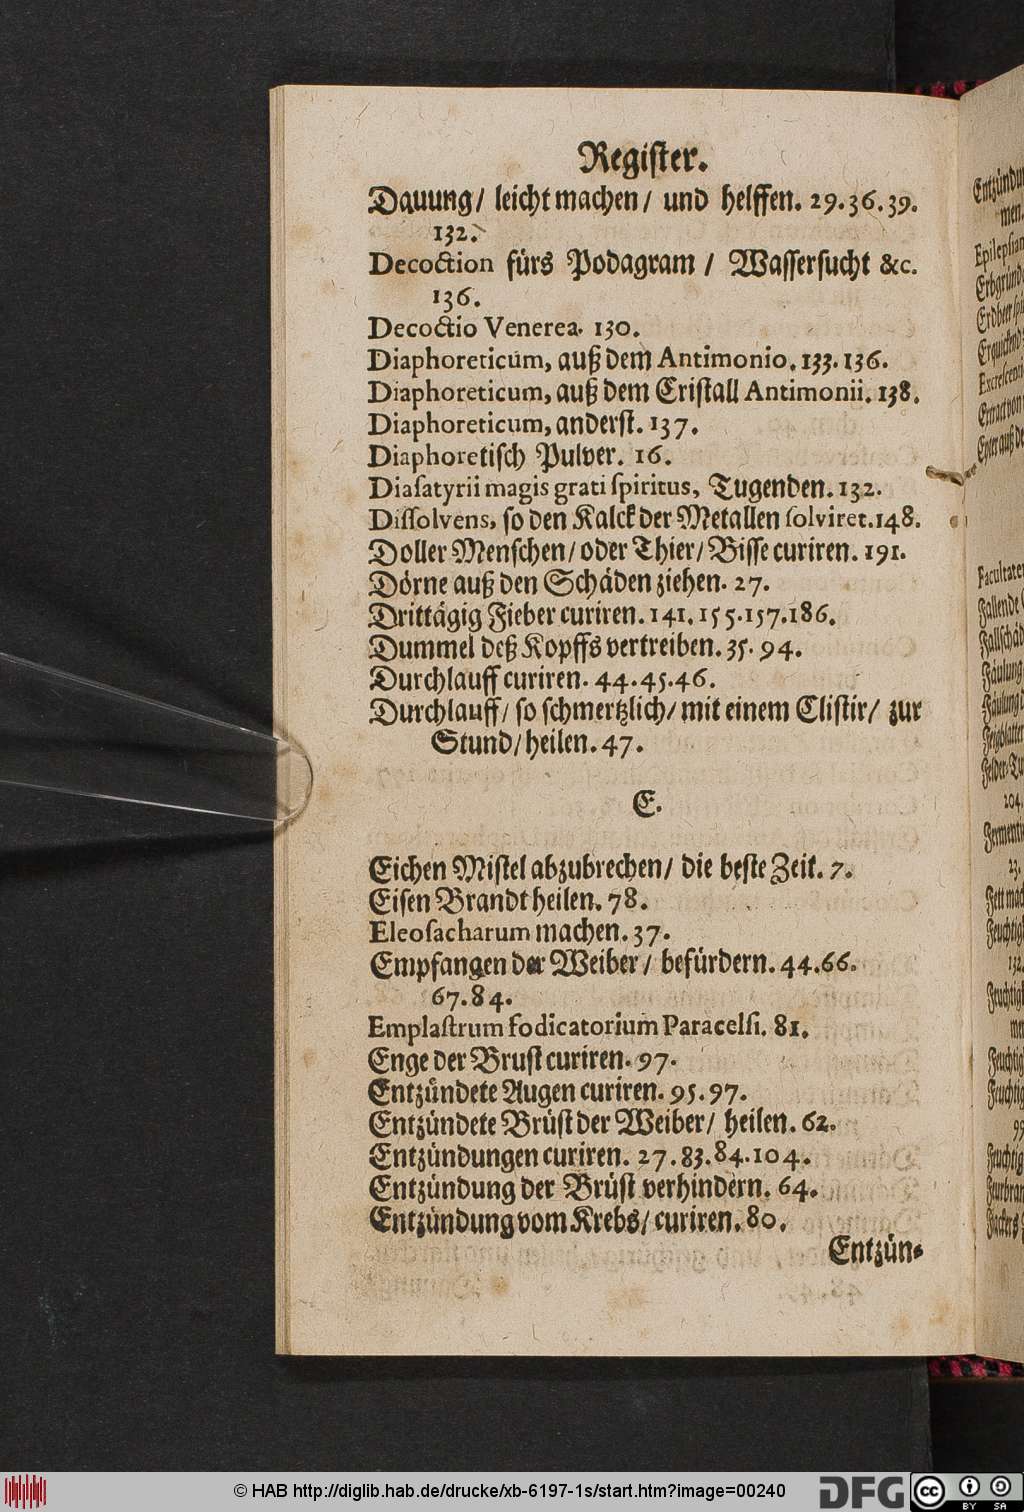 Register.
Dauung/ leicht machen/ und helffen. 29. 36. 39.
132.
Decoction fürs Podagram / Wassersucht &c.
136.
Decoctio Venerea. 130.
Diaphoreticum, auß dem Antimonio. 133. 136.
Diaphoreticum, auß dem Cristall Antimonii. 138.
Diaphoreticum, anderst. 137.
Diaphoretisch Pulver. 16.
Diasatyrii magis grati spiritus, Tugenden. 132.
Dissolvens, so den Kalck der Metallen solviret. 148.
Doller Menschen/ oder Thier/ Bisse curiren. 191.
Dörne auß den Schäden ziehen. 27.
Drittägig Fieber curiren. 141. 155. 157. 186.
Dummel deß Kopffs vertreiben. 35. 94.
Durchlauff curiren. 44. 45. 46.
Durchlauff/ so schmertzlich/ mit einem Clistir/ zur
Stund/ heilen. 47.
E.
Eichen Mistel abzubrechen/ die beste Zeit. 7.
Eisen Brandt heilen. 78.
Eleosacharum machen. 37.
Empfangen der Weiber/ befürdern. 44. 66.
67. 84.
Emplastrum fodicatorium Paracelsi. 81.
Enge der Brust curiren. 97.
Entzündete Augen curiren. 95. 97.
Entzündete Brüst der Weiber/ heilen. 62.
Entzündungen curiren. 27. 83. 84. 104.
Entzündung der Brüst verhindern. 64.
Entzündung vom Krebs/ curiren. 80.
Entzün-
© HAB http://diglib.hab.de/drucke/xb-6197-1s/start.htm?image=00240
DFG
cc
BY SA